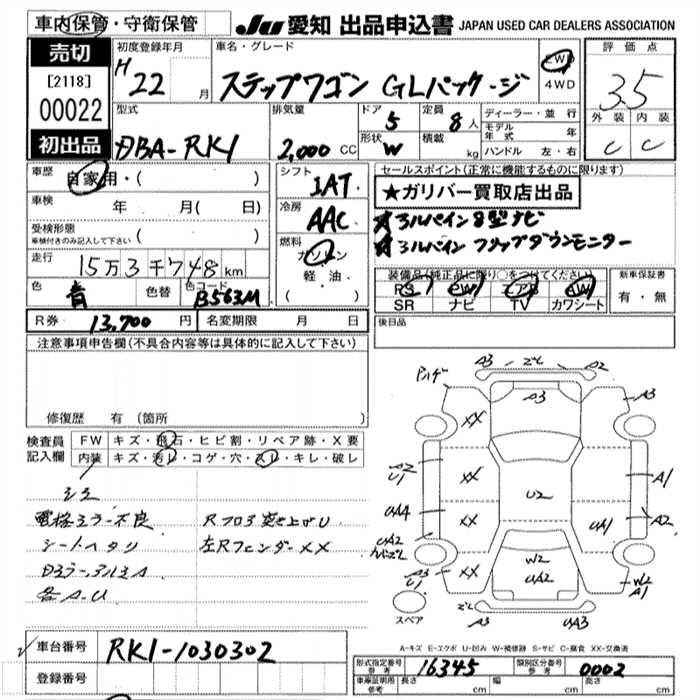 車内保管・守衛保管
JU 愛知 出品申込書 JAPAN USED CAR DEALERS ASSOCIATION
売切
[2118]
00022
初出品
初度登録年月
H22 月
車名・グレード
ステップワゴン GLパッケージ
2WD
4WD
評価点
3.5
外装 内装
C C
型式
DBA-RK1
排気量
2,000 CC
ドア
5
定員
8人
形状
W
積載
kg
ディーラー・並行
モデル年式 年
ハンドル 左・右
車歴
自家用・( )
車検
年 月( 日)
受検形態
車検付きのみ記入して下さい ( )
走行
15万3千748km
色
青
色替
色コード
B563M
シフト
IAT
冷房
AAC
燃料
ガソリン
軽油
( )
セールスポイント(正常に機能するものに限ります)
★ガリバー買取店出品
★アルパイン8型ナビ
★アルパイン フリップダウンモニター
装備品(純正品に限り○をつけてください)
PS PW エアB AW
SR ナビ TV カワシート
新車保証書
有・無
R券 13,700円 名変期限 月 日
後日品
注意事項申告欄(不具合内容等は具体的に記入して下さい)
修復歴 有(箇所 )
検査員記入欄
FW キズ・飛石・ヒビ割・リペア跡・X要
内装 キズ・汚レ・コゲ・穴・スレ・キレ・破レ
シミ
電格ミラー不良
シートヘタリ
Dミラー、アルミA
各A.U
Rフロア突き上げU
左RフェンダーXX
A3 A2
A3
A3
XX
A2
U1
XX
A1
U2
UA4
XX
UA1
A2
UA2
A3
U1
XX
W2
UA2
W2
A1
UA3
スペア
A-キズ E-エクボ U-凹み W-補修跡 S-サビ C-腐食 XX-交換済
車台番号 RK1-1030302
登録番号
形式指定番号 参考 16345
類別区分番号 参考 0002
車庫証明用 参考 長さ cm 幅 cm 高さ cm